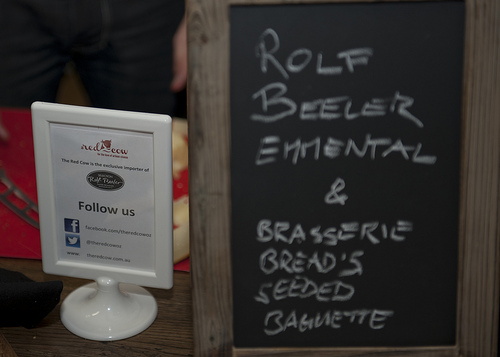 red cow
The Red Cow is the exclusive importer of
Rolf Beeler
Follow us
facebook.com/theredcowoz
@theredcowoz
www. theredcow.com.au
ROLF
BEELER
EMMENTAL
&
BRASSERIE
BREAD'S
SEEDED
BAGUETTE